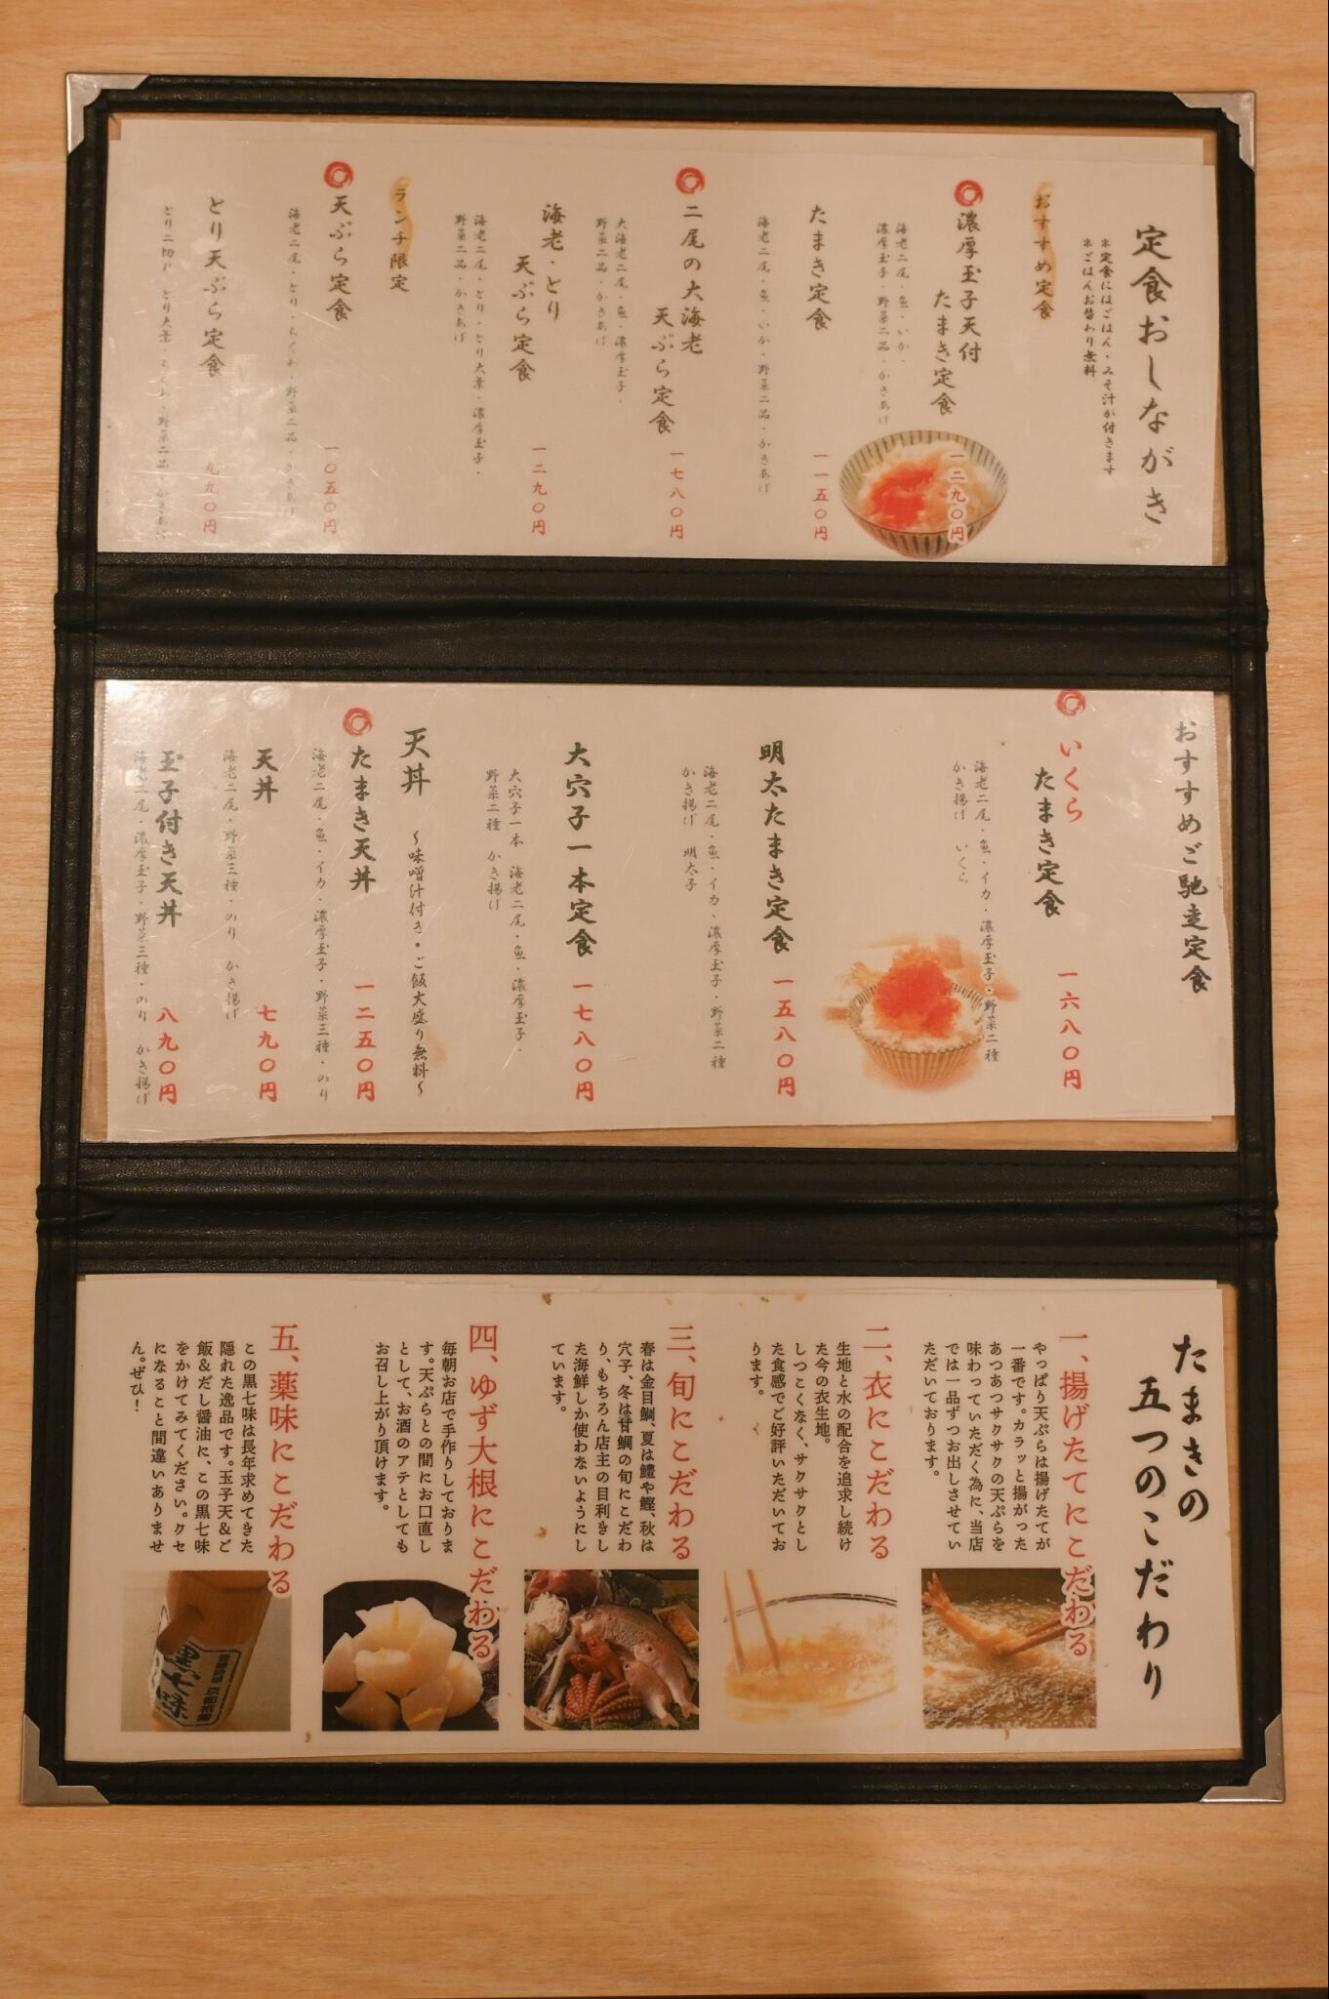 定食おしながき
※定食にはごはん・みそ汁が付きます
※ごはんお替わり無料
おすすめ定食
濃厚玉子天付
たまき定食
一二九〇円
海老二尾・魚・いか・
濃厚玉子・野菜二品・かきあげ
たまき定食
一一五〇円
海老二尾・魚・いか・野菜二品・かきあげ
二尾の大海老
天ぷら定食
一七八〇円
大海老二尾・魚・濃厚玉子・
野菜二品・かきあげ
海老・とり
天ぷら定食
一二九〇円
海老二尾・とり・とり大葉・濃厚玉子・
野菜二品・かきあげ
ランチ限定
天ぷら定食
一〇五〇円
海老二尾・とり・ちくわ・野菜二品・かきあげ
とり天ぷら定食
九九〇円
とり二切れ・とり大葉・ちくわ・野菜二品・かきあげ
おすすめご馳走定食
いくら
たまき定食
一六八〇円
海老二尾・魚・イカ・濃厚玉子・野菜二種
かき揚げ いくら
明太たまき定食 一五八〇円
海老二尾・魚・イカ・濃厚玉子・野菜二種
かき揚げ 明太子
大穴子一本定食 一七八〇円
大穴子一本 海老二尾・魚・濃厚玉子・
野菜二種 かき揚げ
天丼 〜味噌汁付き・ご飯大盛り無料〜
たまき天丼 一二五〇円
海老二尾・魚・イカ・濃厚玉子・野菜三種・のり
天丼 七九〇円
海老二尾・野菜三種・のり かき揚げ
玉子付き天丼 八九〇円
海老二尾・濃厚玉子・野菜三種・のり かき揚げ
たまきの
五つのこだわり
一、揚げたてにこだわる
やっぱり天ぷらは揚げたてが
一番です。カラッと揚がった
あつあつサクサクの天ぷらを
味わっていただく為に、当店
では一品ずつお出しさせてい
ただいております。
二、衣にこだわる
生地と水の配合を追求し続け
た今の衣生地。
しつこくなく、サクサクとし
た食感でご好評いただいてお
ります。
三、旬にこだわる
春は金目鯛、夏は鱧や鰹、秋は
穴子、冬は甘鯛の旬にこだわ
り、もちろん店主の目利きし
た海鮮しか使わないようにし
ています。
四、ゆず大根にこだわる
毎朝お店で手作りしておりま
す。天ぷらとの間にお口直し
として、お酒のアテとしても
お召し上がり頂けます。
五、薬味にこだわる
この黒七味は長年求めてきた
隠れた逸品です。玉子天&ご
飯&だし醤油に、この黒七味
をかけてみてください。クセ
になること間違いありませ
ん。ぜひ！
黒七味